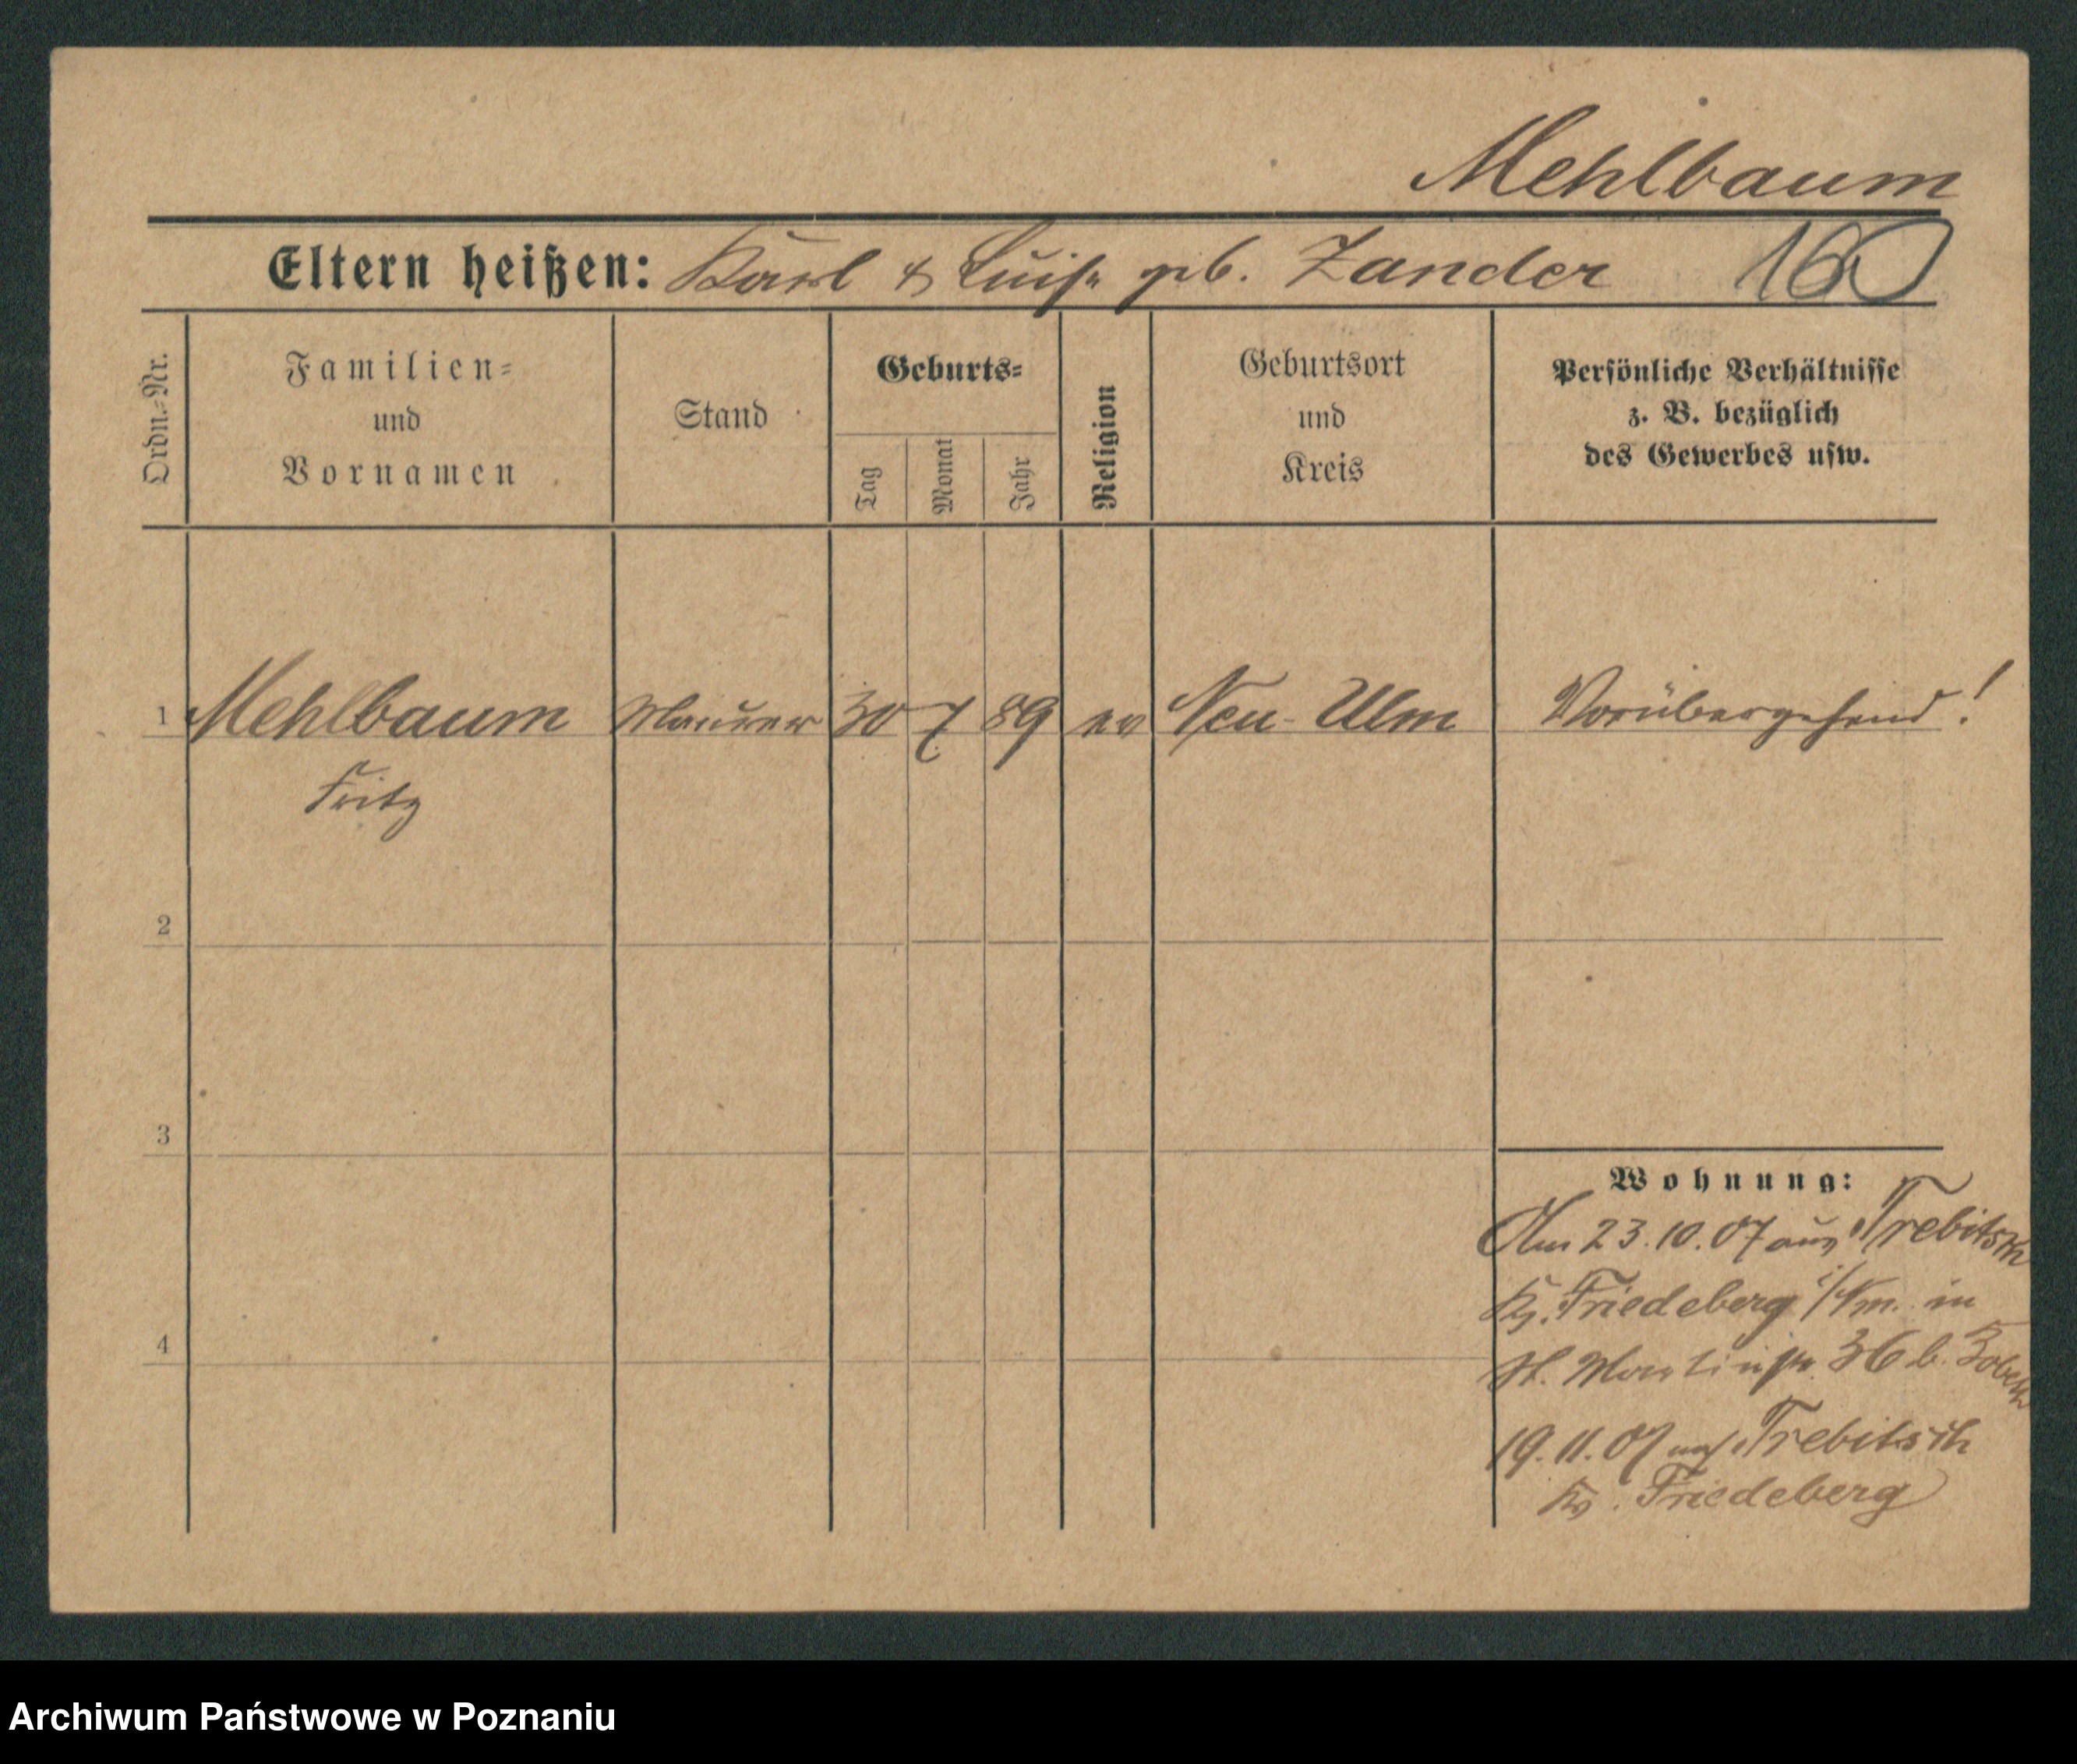 Mehlbaum
Eltern heißen: Karl & Luise geb. Zander 160
Ordn.-Nr.
Familien-
und
Vornamen
Stand
Geburts-
Tag
Monat
Jahr
Religion
Geburtsort
und
Kreis
Persönliche Verhältnisse
z. B. bezüglich
des Gewerbes usw.
1 Mehlbaum Maurer 30 7 89 ev Neu-Ulm Vorübergehend!
Fritz
2
3
4
Wohnung:
Am 23.10.07 aus Trebitsch
Kr. Friedeberg i/Nm. in
St. Martinstr. 36 b.
19.11.07 nach Trebitsch
Kr. Friedeberg
Archiwum Państwowe w Poznaniu